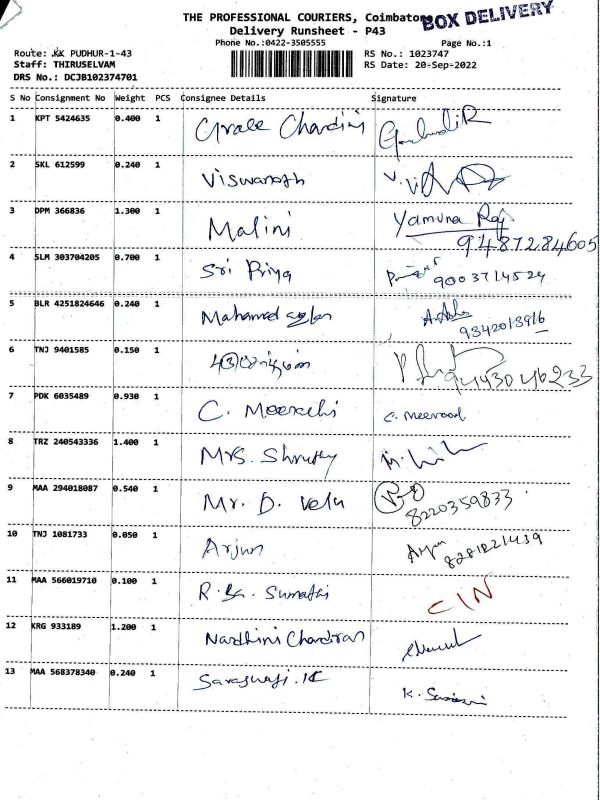 THE PROFESSIONAL COURIERS, Coimbatore
BOX DELIVERY
Delivery Runsheet - P43
Phone No.:0422-3505555
Page No.:1
Route: KK PUDHUR-1-43
RS No.: 1023747
Staff: THIRUSELVAM
RS Date: 20-Sep-2022
DRS No.: DCJB102374701
S No Consignment No Weight PCS Consignee Details Signature
1 KPT 5424635 0.400 1 Grace Chandini
2 SKL 612599 0.240 1 Viswanath
3 DPM 366836 1.300 1 Malini Yamuna Raj
9487284605
4 SLM 303704205 0.700 1 Sri Priya
9003714524
5 BLR 4251824646 0.240 1 Mahamed
9342013916
6 TNJ 9401585 0.150 1
9443046233
7 PDK 6035489 0.930 1 C. Meenachi C. Meenool
8 TRZ 240543336 1.400 1 Mrs. Shruthy
9 MAA 294018087 0.540 1 Mr. D. Velu
8220359833
10 TNJ 1081733 0.050 1 Arjun Arjun
8281221439
11 MAA 566019710 0.100 1 R. K. Sumathi C/N
12 KRG 933189 1.200 1 Nandhini Chandran
13 MAA 568378340 0.240 1 Saraswaji.K